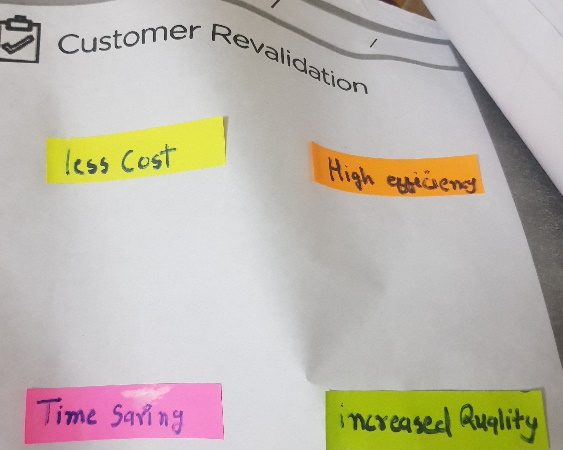 Customer Revalidation
less Cost
High efficiency
Time Saving
increased Quality